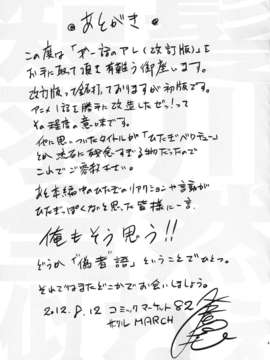 ◎ あとがき ◎
この度は「オー話のアレ(改訂版)」を
お手に取って頂き有難う御座います。
改訂版って銘打っておりますが初版です。
アニメ1話を勝手に改造したぜっ!って
その程度の意味です。
他に思いついたタイトルが「ひたぎバリデュー」
とか
すぎる物だったので
これでご容赦下さい。
あと本編中ひたぎのリアクションや言動が
ひたぎっぽくないと思った皆様に一言。
俺もそう思う!!
どうか「偽者語」ということでひとつ。
それではまたどこかでお会いしましょう。
2012.8.12 コミックマーケット82
サークル MARCH